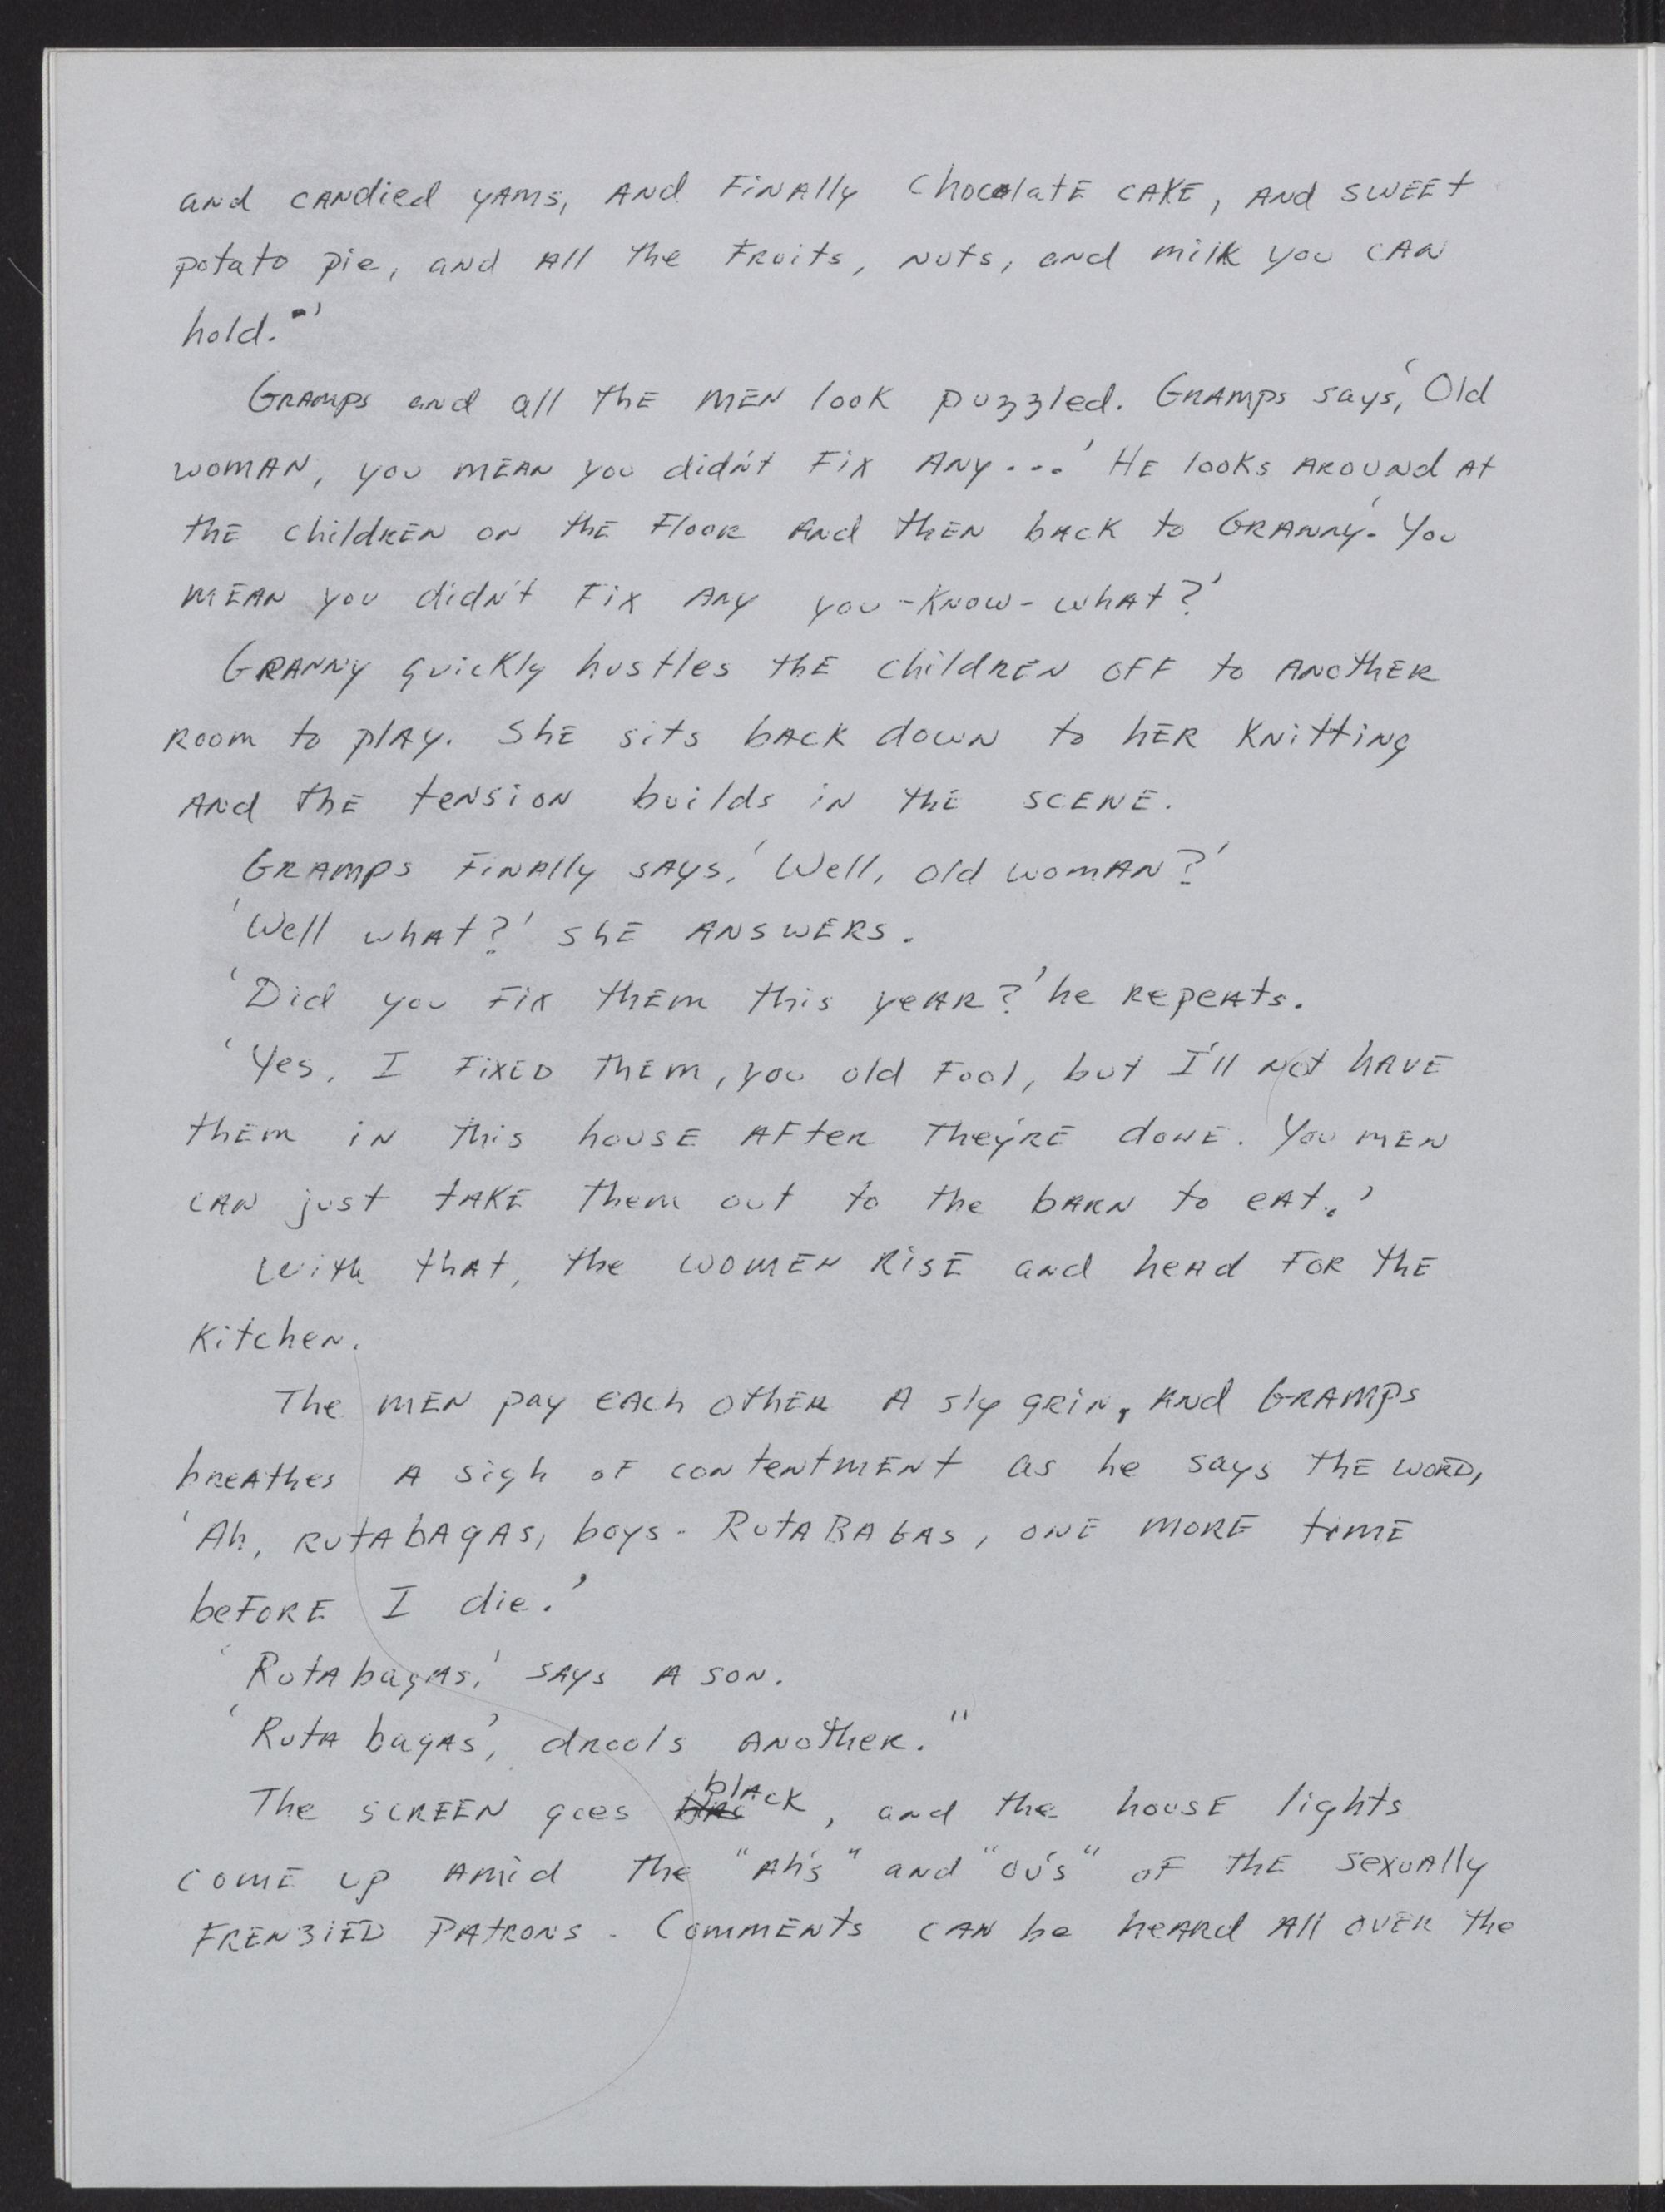 and candied yams, and finally chocolate cake, and sweet
potato pie, and all the fruits, nuts, and milk you can
hold."'
Gramps and all the men look puzzled. Gramps says, 'Old
woman, you mean you didn't fix any...' He looks around at
the children on the floor and then back to Granny. 'You
mean you didn't fix any you-know-what?'
Granny quickly hustles the children off to another
room to play. She sits back down to her knitting
and the tension builds in the scene.
Gramps finally says, 'Well, old woman?'
'Well what?' she answers.
'Did you fix them this year?' he repeats.
'Yes, I fixed them, you old fool, but I'll not have
them in this house after they're done. You men
can just take them out to the barn to eat.'
With that, the women rise and head for the
kitchen.
The men pay each other a sly grin, and Gramps
breathes a sigh of contentment as he says the word,
'Ah, rutabagas, boys - Rutabagas, one more time
before I die.'
'Rutabagas,' says a son.
'Rutabagas', drools another."
The screen goes black, and the house lights
come up amid the "Ah's" and "Ou's" of the sexually
frenzied patrons. Comments can be heard all over the